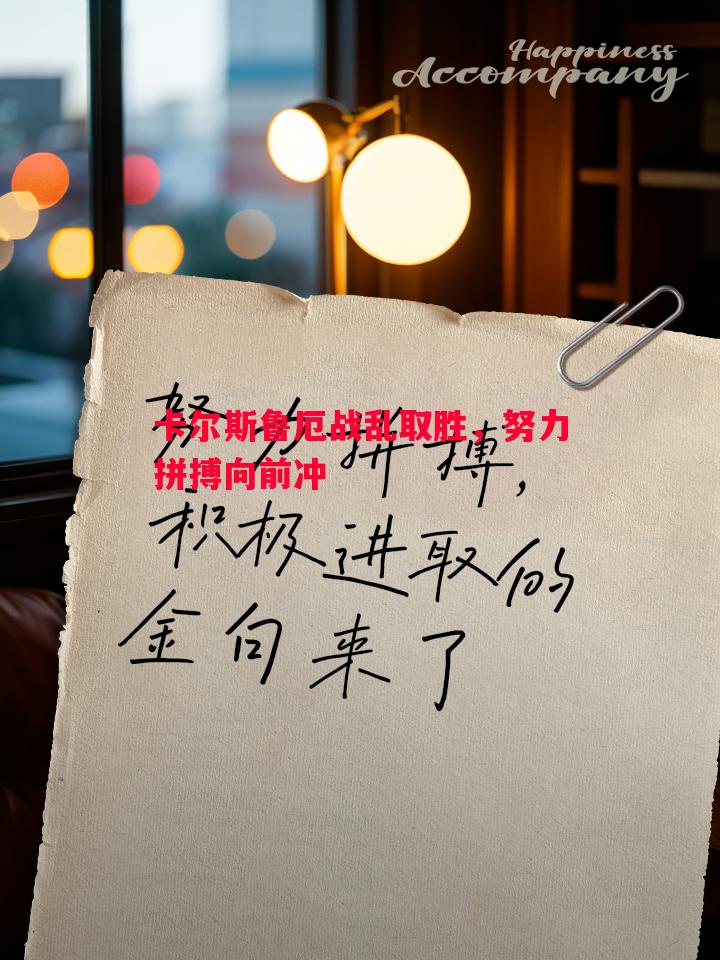 Happiness
Accompany
卡尔斯鲁厄战乱取胜，努力
拼搏向前冲
努力拼搏,
积极进取的
金句来了